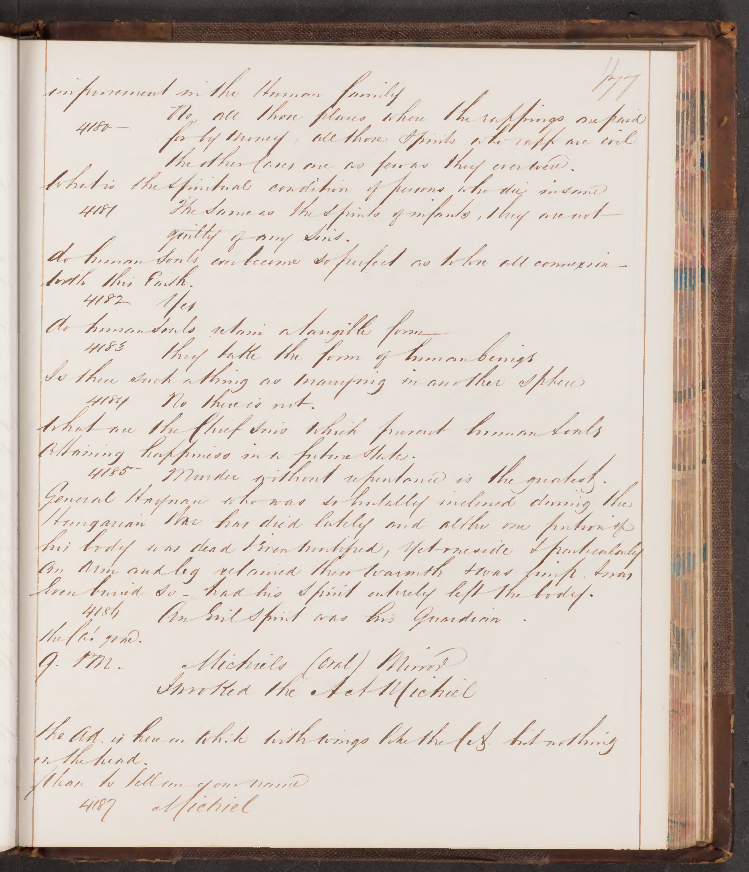 177
improvement in the Human family
4180 – No, all those places where the rappings are paid
for by money, all those Spirits who rapp are evil
the other Cases are as few as they ever were.
What is the Spiritual condition of persons who die insane
4181 The same as the Spirits of infants, they are not
guilty of any Sins.
do human Souls ever become so perfect as to lose all connexion
with this Earth.
4182 Yes
do human Souls retain a tangible form
4183 they take the form of human beings
Is there such a thing as marrying in another Sphere
4184 No there is not.
What are the Chief Sins which prevent human Souls
attaining happiness in a future State.
4185 Murder without repentance is the greatest.
General Haynau who was so brutally inclined during the
Hungarian War has died lately and altho one portion of
his body was dead & Even mortified, Yet one side & particularly
an Arm and leg retained their warmth & was limp & was
Even buried so – had his Spirit entirely left the body.
4186 An Evil Spirit was his Guardian.
the is gone.
9. PM. Michiels (Oval) Mirror
Invoked the Michiel
the is here in White with wings like the but nothing
on the head.
to tell me your name
4187 Michiel